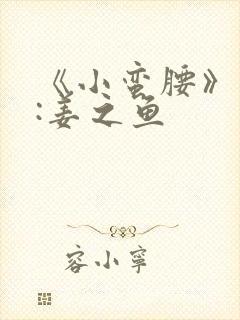 《小蛮腰》
:姜之鱼
容小宰